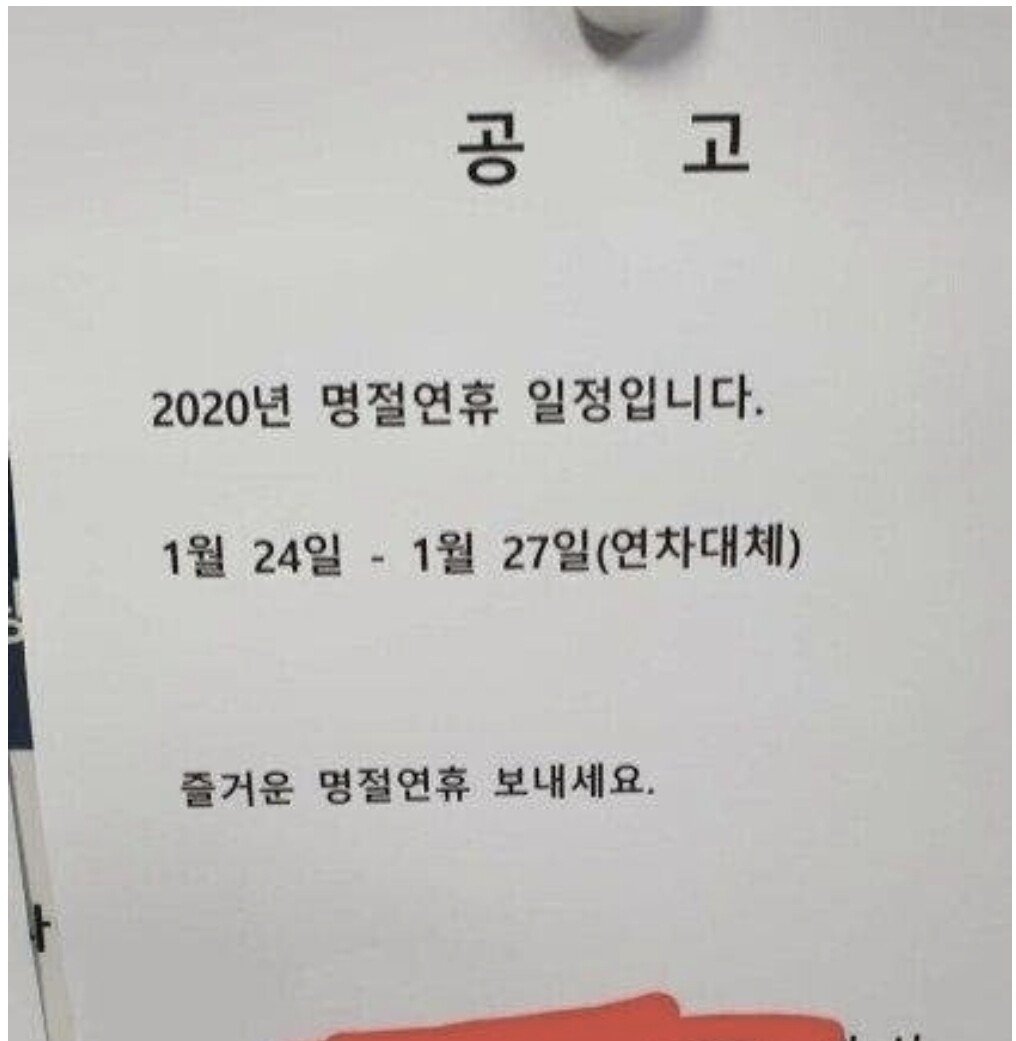 공 고
2020년 명절연휴 일정입니다.
1월 24일 - 1월 27일(연차대체)
즐거운 명절연휴 보내세요.